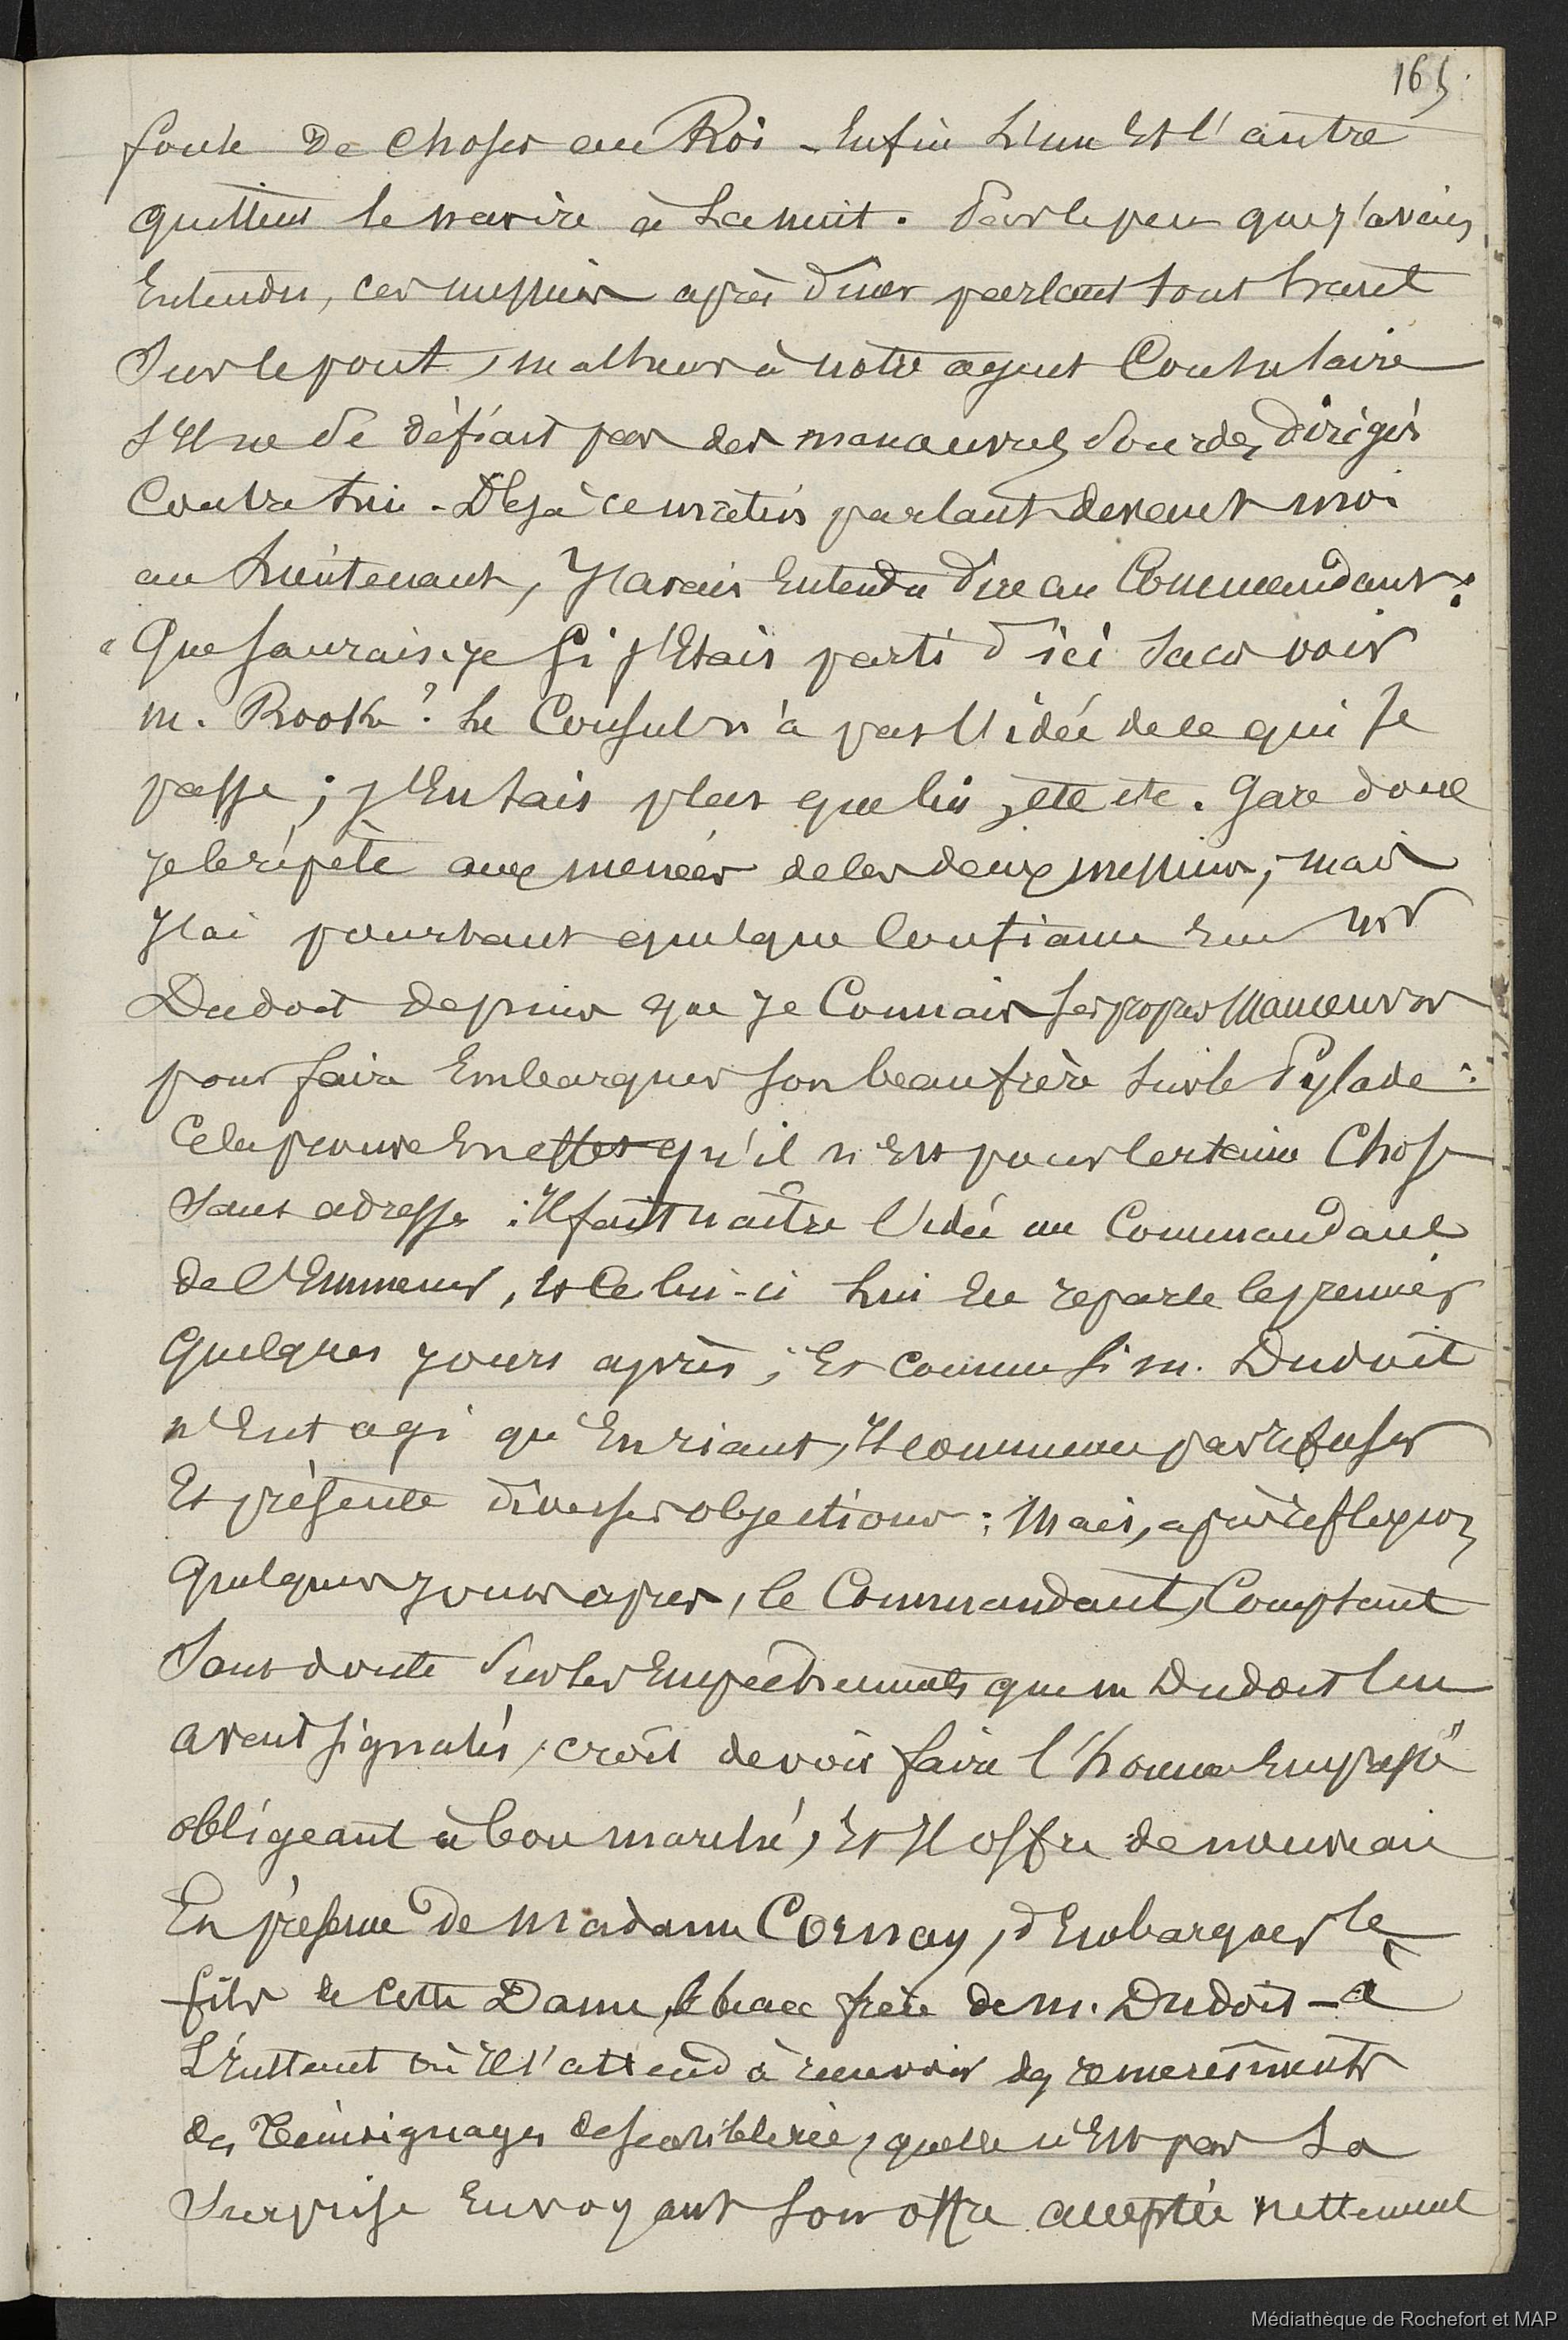 165.
foule de choses au Roi – Enfin l'un Et l'autre
quittent le navire à la nuit. Par le peu que j'avais
Entendu, ces messieurs après diner parlant tout haut
Sur le pont, malheur à notre agent Consulaire
S'Il ne Se défiait pas des manœuvres Sourdes dirigés
Contre lui. Déja ce matin parlant devant moi
au lieutenant, J'avais Entendu dire au Commandant :
"Que saurais-je Si j'Etais parti d'ici Sans voir
m. Rook ? Le Consul n'a pas l'idée de ce qui Se
passe ; j'En Sais plus que lui, etc etc. Gare donc
je le répète aux menées de ces deux messieurs ; mais
J'ai pourtant quelque Confiance En Mr
Dudoit depuis que Je Connais Ses propres Manœuvres
pour faire Embarquer Son beau frère Sur le Pylade :
Cela prouve En effet qu'il n'Est pour certaine Chose
Sans adresse : Il fait naître l'idée au Commandant
de l'Emmener, Et Celui-ci lui En reparle le premier
Quelques jours après ; Et comme Si m. Dudoit
n'Eut agi qu'En riant, Il commence par refuser
Et présente diverses objections : Mais, après réflexion
Quelques jours après, le Commandant, Comptant
Sans doute Sur les Empêchements que m Dudoit lui
avait Signalés, croit devoir faire l'homme Empressé
obligeant à bon marché, Et Il offre de nouveau
En présence de Madame Cornay, d'Embarquer le
fils de Cette Dame, le beau frère de m. Dudoit – à
L'instant où Il s'attend à recevoir des remerciments
des Témoignages de sensiblerie, quelle n'Est pas Sa
Surprise En voyant Son offre acceptée nettement
Médiathèque de Rochefort et MAP